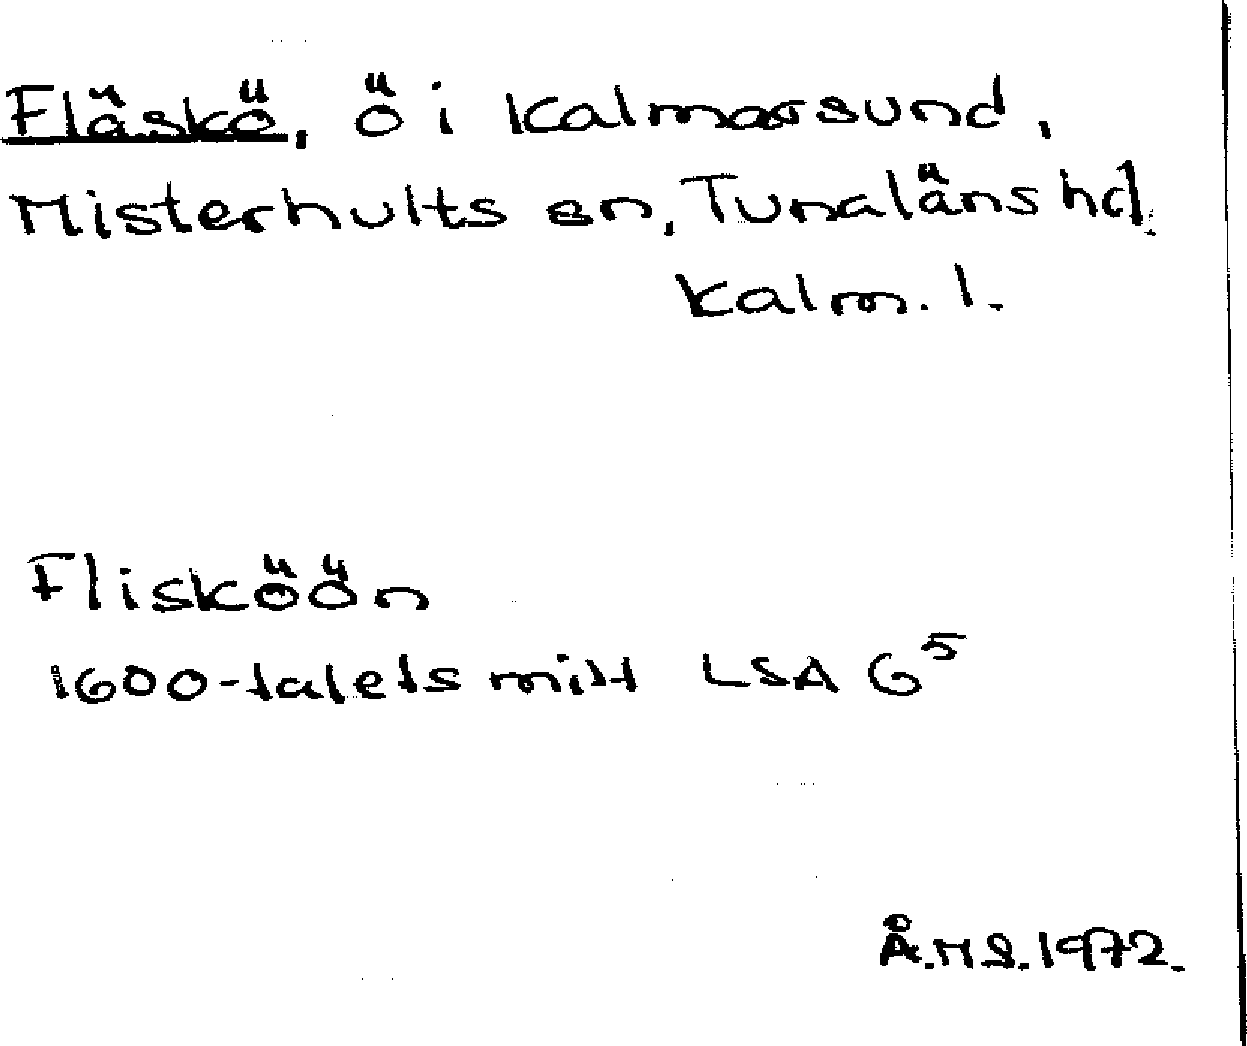 Fläskö, ö i Kalmarsund,
Misterhults sn, Tunaläns hd.
Kalm. l.
Flisköön
1600-talets mitt LSA G⁵
Å.M.S. 1972.